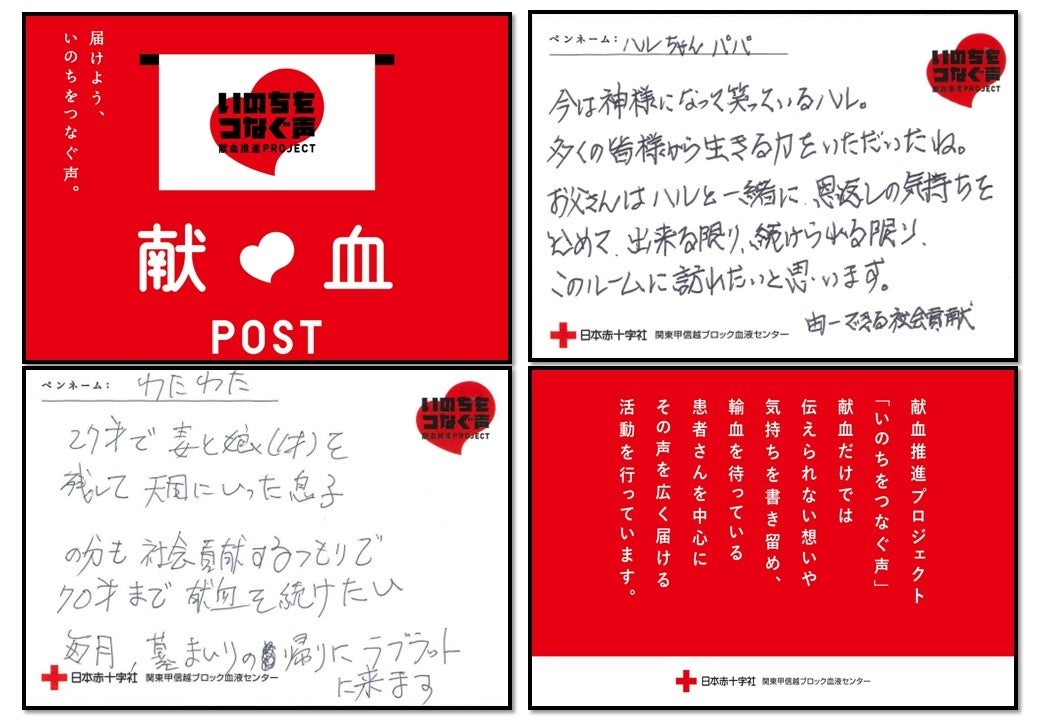 届けよう、
いのちをつなぐ声。
いのちを
つなぐ声
献血推進PROJECT
献血
POST
ペンネーム：ハルちゃんパパ
いのちを
つなぐ声
献血推進PROJECT
今は神様になって笑っているハル。
多くの皆様から生きる力をいただいたね。
お父さんはハルと一緒に、恩返しの気持ちを
込めて、出来る限り、続けられる限り、
このルームに訪れたいと思います。
由一できる社会貢献
日本赤十字社 関東甲信越ブロック血液センター
ペンネーム：わたわた
いのちを
つなぐ声
献血推進PROJECT
27才で妻と娘(1才)を
残して天国にいった息子
の分も社会貢献するつもりで
70才まで献血を続けたい
毎月、墓まいりの帰りにラブラット
に来ます
日本赤十字社 関東甲信越ブロック血液センター
献血推進プロジェクト
「いのちをつなぐ声」
献血だけでは
伝えられない想いや
気持ちを書き留め、
輸血を待っている
患者さんを中心に
その声を広く届ける
活動を行っています。
日本赤十字社 関東甲信越ブロック血液センター